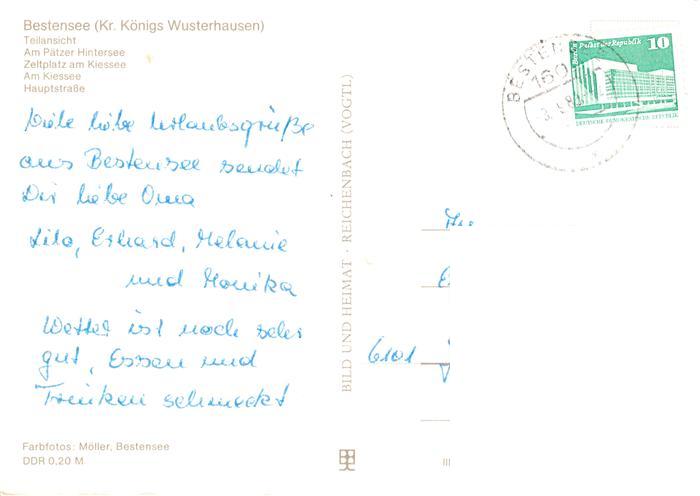 Bestensee (Kr. Königs Wusterhausen)
Teilansicht
Am Pätzer Hintersee
Zeltplatz am Kiessee
Am Kiessee
Hauptstraße
Viele liebe Urlaubsgrüße
aus Bestensee sendet
Dir liebe Oma
Lilo, Erhard, Melanie
und Monika
Wetter ist noch sehr
gut, Essen und
Trinken schmeckt
Farbfotos: Möller, Bestensee
DDR 0,20 M
BILD UND HEIMAT · REICHENBACH (VOGTL)
BESTEN
160
Berlin Palast der Republik 10
DEUTSCHE DEMOKRATISCHE REPUBLIK
6101
III